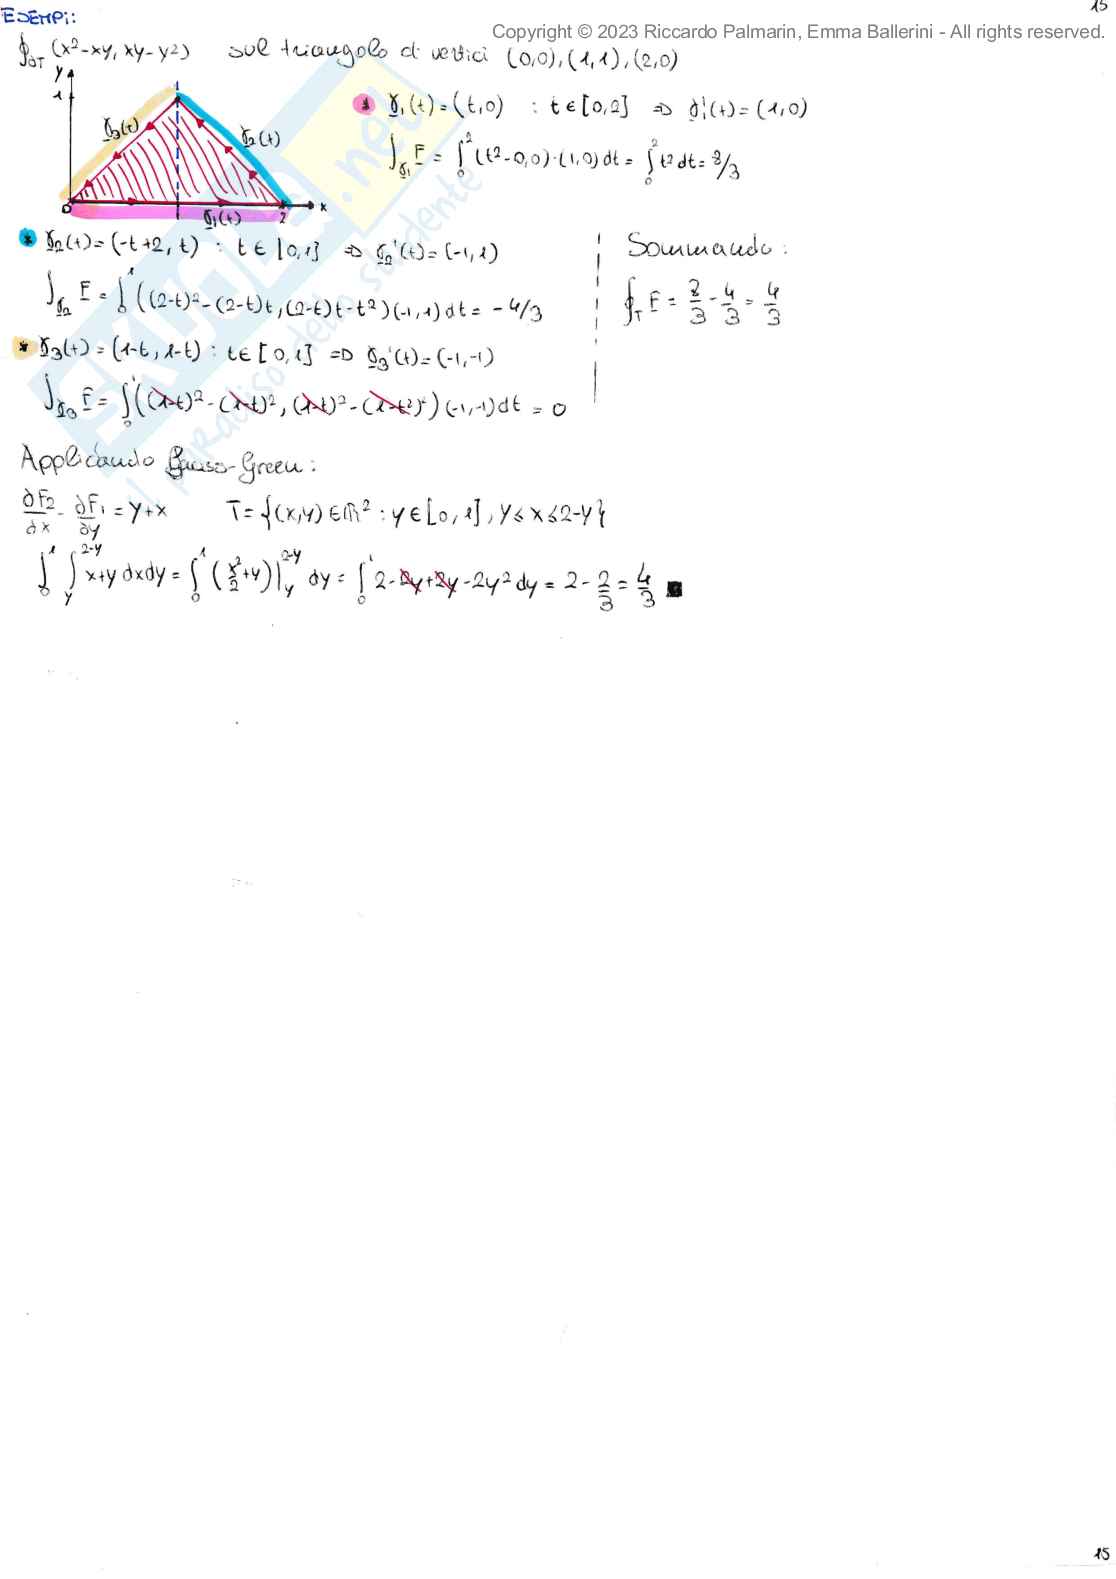 15
Copyright © 2023 Riccardo Palmarin, Emma Ballerini - All rights reserved.
ESEMPI:
∮∂T (x²-xy, xy-y²) sul triangolo di vertici (0,0), (1,1), (2,0)
y
1
γ3(t)
γ2(t)
0
γ1(t)
2
x
* γ1(t) = (t,0) : t∈[0,2] ⇒ γ1'(t) = (1,0)
∫γ1 F = ∫₀² (t²-0,0)·(1,0)dt = ∫₀² t²dt = 8/3
* γ2(t) = (-t+2, t) : t∈[0,1] ⇒ γ2'(t) = (-1,1)
∫γ2 F = ∫₀¹ ((2-t)²-(2-t)t, (2-t)t-t²)(-1,1)dt = -4/3
* γ3(t) = (1-t, 1-t) : t∈[0,1] ⇒ γ3'(t) = (-1,-1)
∫γ3 F = ∫₀¹ ((1-t)²-(1-t)², (1-t)²-(1-t²)²)(-1,-1)dt = 0
Sommando:
∮T F = 8/3 - 4/3 = 4/3
Applicando Gauss-Green:
∂F2/∂x - ∂F1/∂y = y+x T = {(x,y)∈ℝ² : y∈[0,1], y≤x≤2-y}
∫₀¹ ∫y^2-y x+y dxdy = ∫₀¹ (x²/2+y)|y^2-y dy = ∫₀¹ 2-2y+2y-2y² dy = 2 - 2/3 = 4/3 ■
SKUOLA.net
il paradiso dello studente
15